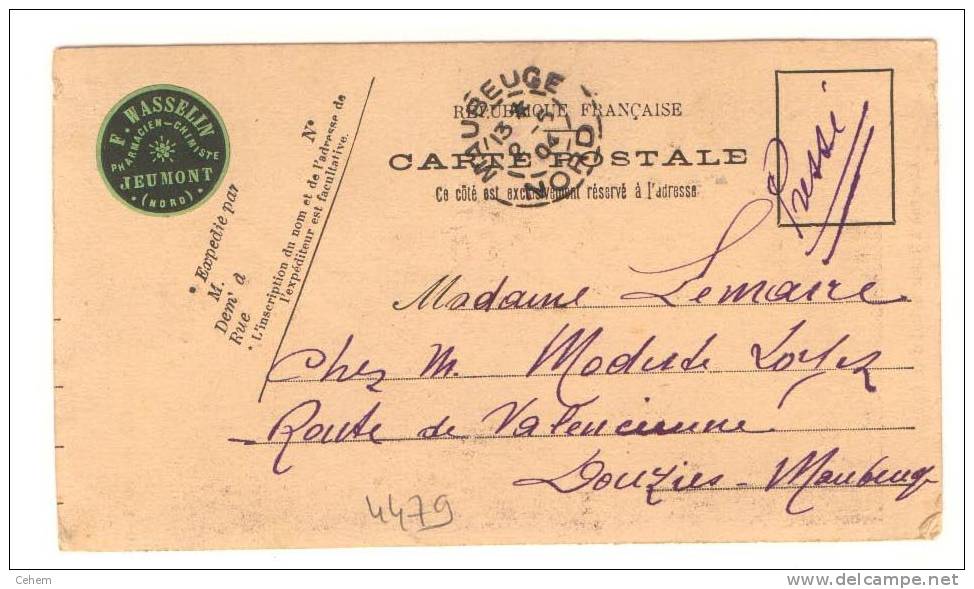 F. WASSELIN
PHARMACIEN-CHIMISTE
JEUMONT
(NORD)
* Expédié par
M.
Demt à
Rue
N°
* L'inscription du nom et de l'adresse de
l'expéditeur est facultative.
MAUBEUGE
NORD
RÉPUBLIQUE FRANÇAISE
CARTE POSTALE
Ce côté est exclusivement réservé à l'adresse
Pressé
Madame Lemaire
Chez M. Modeste
Route de Valencienne
Douzies - Maubeuge
4479
Cehem
www.delcampe.net